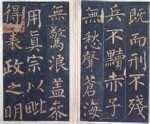 既而刑不残
兵不黷赤子
無愁聲蒼海
無驚浪蓋叅
用眞宗以毗
得衰政之明